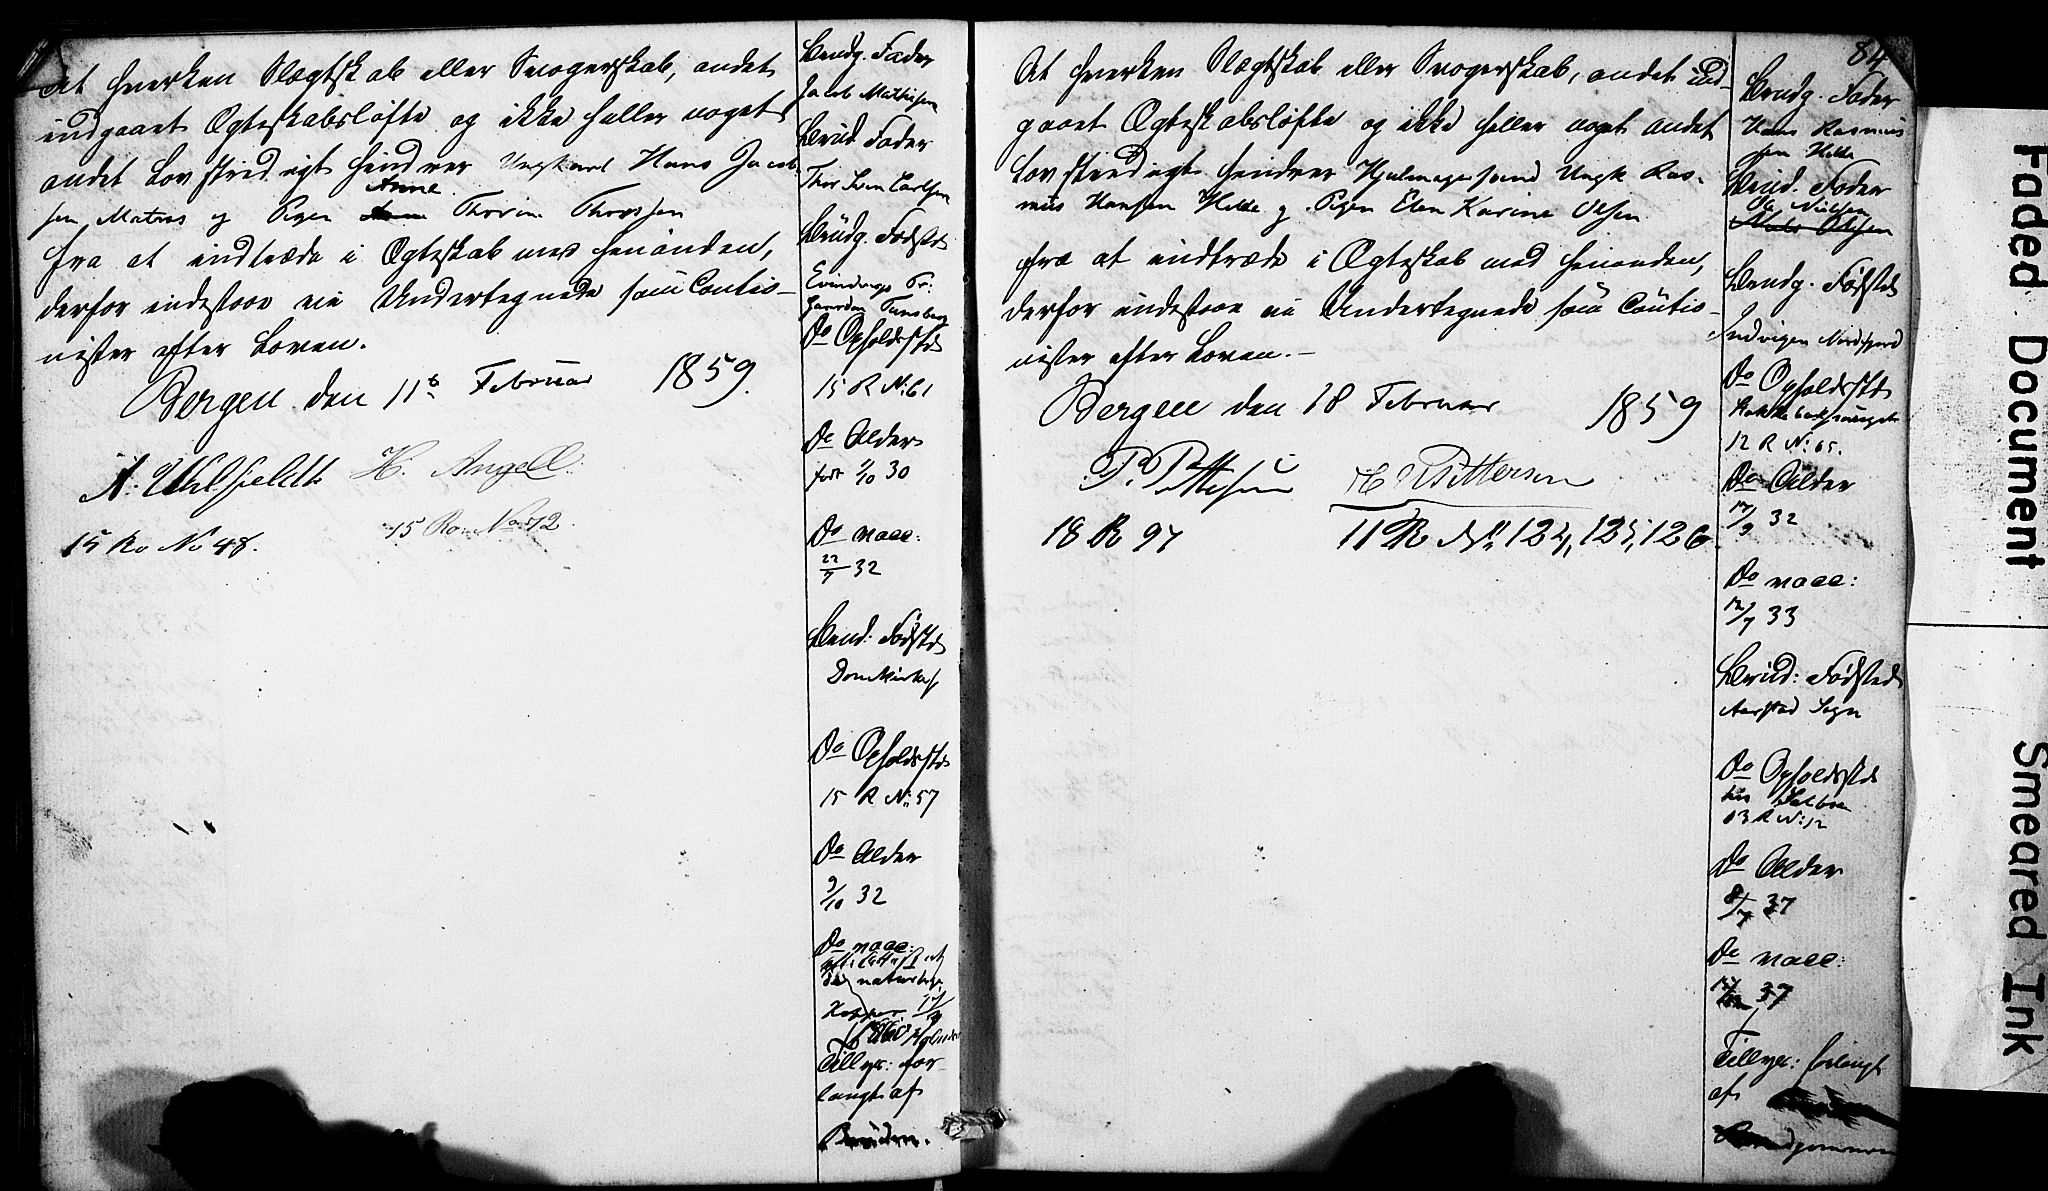 At hverken Slægtskab eller Svogerskab, andet
indgaaet Ægteskabsløfte og ikke heller noget
andet Lovstridigt hindrer Ungkarl Hans Jacob-
sen Matros og Pigen Anne Thorine Thorssen
fra at indtræde i Ægteskab med hinanden,
derfor indestaae vi Undertegnede som Cautio-
nister efter Loven.
Bergen den 11te Februar 1859.
H. Angell
15 Ro No 48.
15 Ro No 72.
Brudg. Fader
Jacob Mathisen
Brud. Fader
Thor Carlsen
Brudg. Fødsted
Do Opholdssted
15 R No 61
Do Alder
født 1/10 30
Do vacc:
22/7 32
Brud. Fødsted
Domkirkes
Do Opholdssted
15 R No 57
Do Alder
9/10 32
Do vacc:
Tillys: for-
langt af
Bruden.
84
At hverken Slægtskab eller Svogerskab, andet ind-
gaaet Ægteskabsløfte og ikke heller noget andet
Lovstridigt hindrer Hjulmagersvend Ungk Ras-
mus Hansen Hilde og Pigen Elen Karine Olsen
fra at indtræde i Ægteskab med hinanden,
derfor indestaae vi Undertegnede som Cautio-
nister efter Loven.-
Bergen den 18 Februar 1859
18 R 97
11 R No 124, 125, 126
Brudg. Fader
Hans Rasmus
sen Hilde
Brud. Fader
Ole Nielsen
Brudg. Fødsted
Indvigen Nordfjord
Do Opholdssted
12 R No: 65.
Do Alder
17/9 32
Do vacc:
12/7 33
Brud: Fødsted
Aarstad Sogn
Do Opholdssted
hos
13 R No: 12
Do Alder
8/7 37
Do vacc:
37
Tillys: forlangt
af
Brudgommen
Faded Document
Smeared Ink